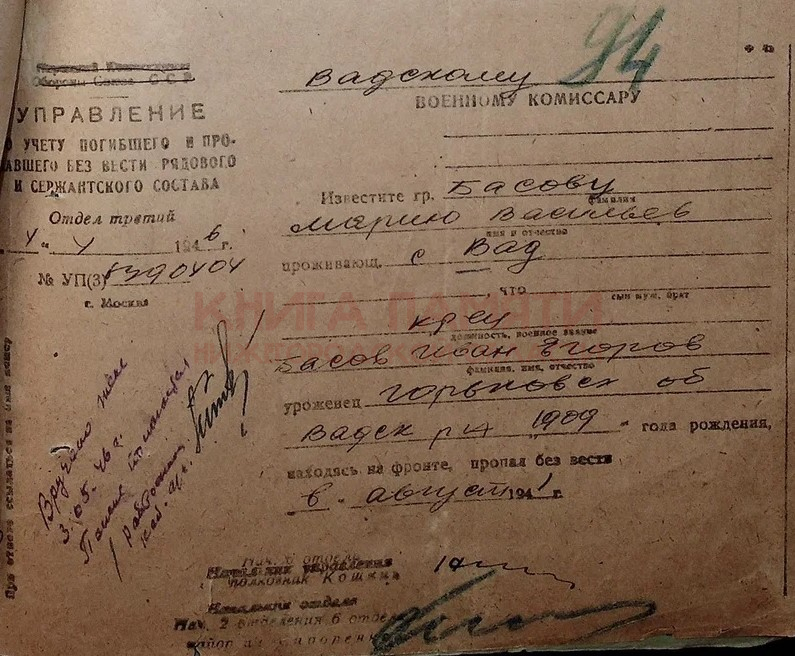 94
Народный Комиссариат
Обороны Союза ССР
УПРАВЛЕНИЕ
ПО УЧЕТУ ПОГИБШЕГО И ПРО-
ПАВШЕГО БЕЗ ВЕСТИ РЯДОВОГО
И СЕРЖАНТСКОГО СОСТАВА
Отдел третий
1946 г.
№ УП(3)
г. Москва
Вадскому
ВОЕННОМУ КОМИССАРУ
Известите гр. Басову
фамилия
Марию Васильев
имя и отчество
проживающ. с Вад
, что
сын муж, брат
кр-ец
должность, военное звание
Басов Иван Егоров
фамилия, имя, отчество
уроженец Горьковск об
Вадск р-н 1909 года рождения,
находясь на фронте, пропал без вести
в август 1941 г.
КНИГА ПАМЯТИ
Вручено жене
3.05.46 г.
При ответе ссылаться на наш номер
Нач. 6 отдела
Начальник управления
полковник Кошкин
Начальник отдела
Нач. 2 отделения 6 отдела